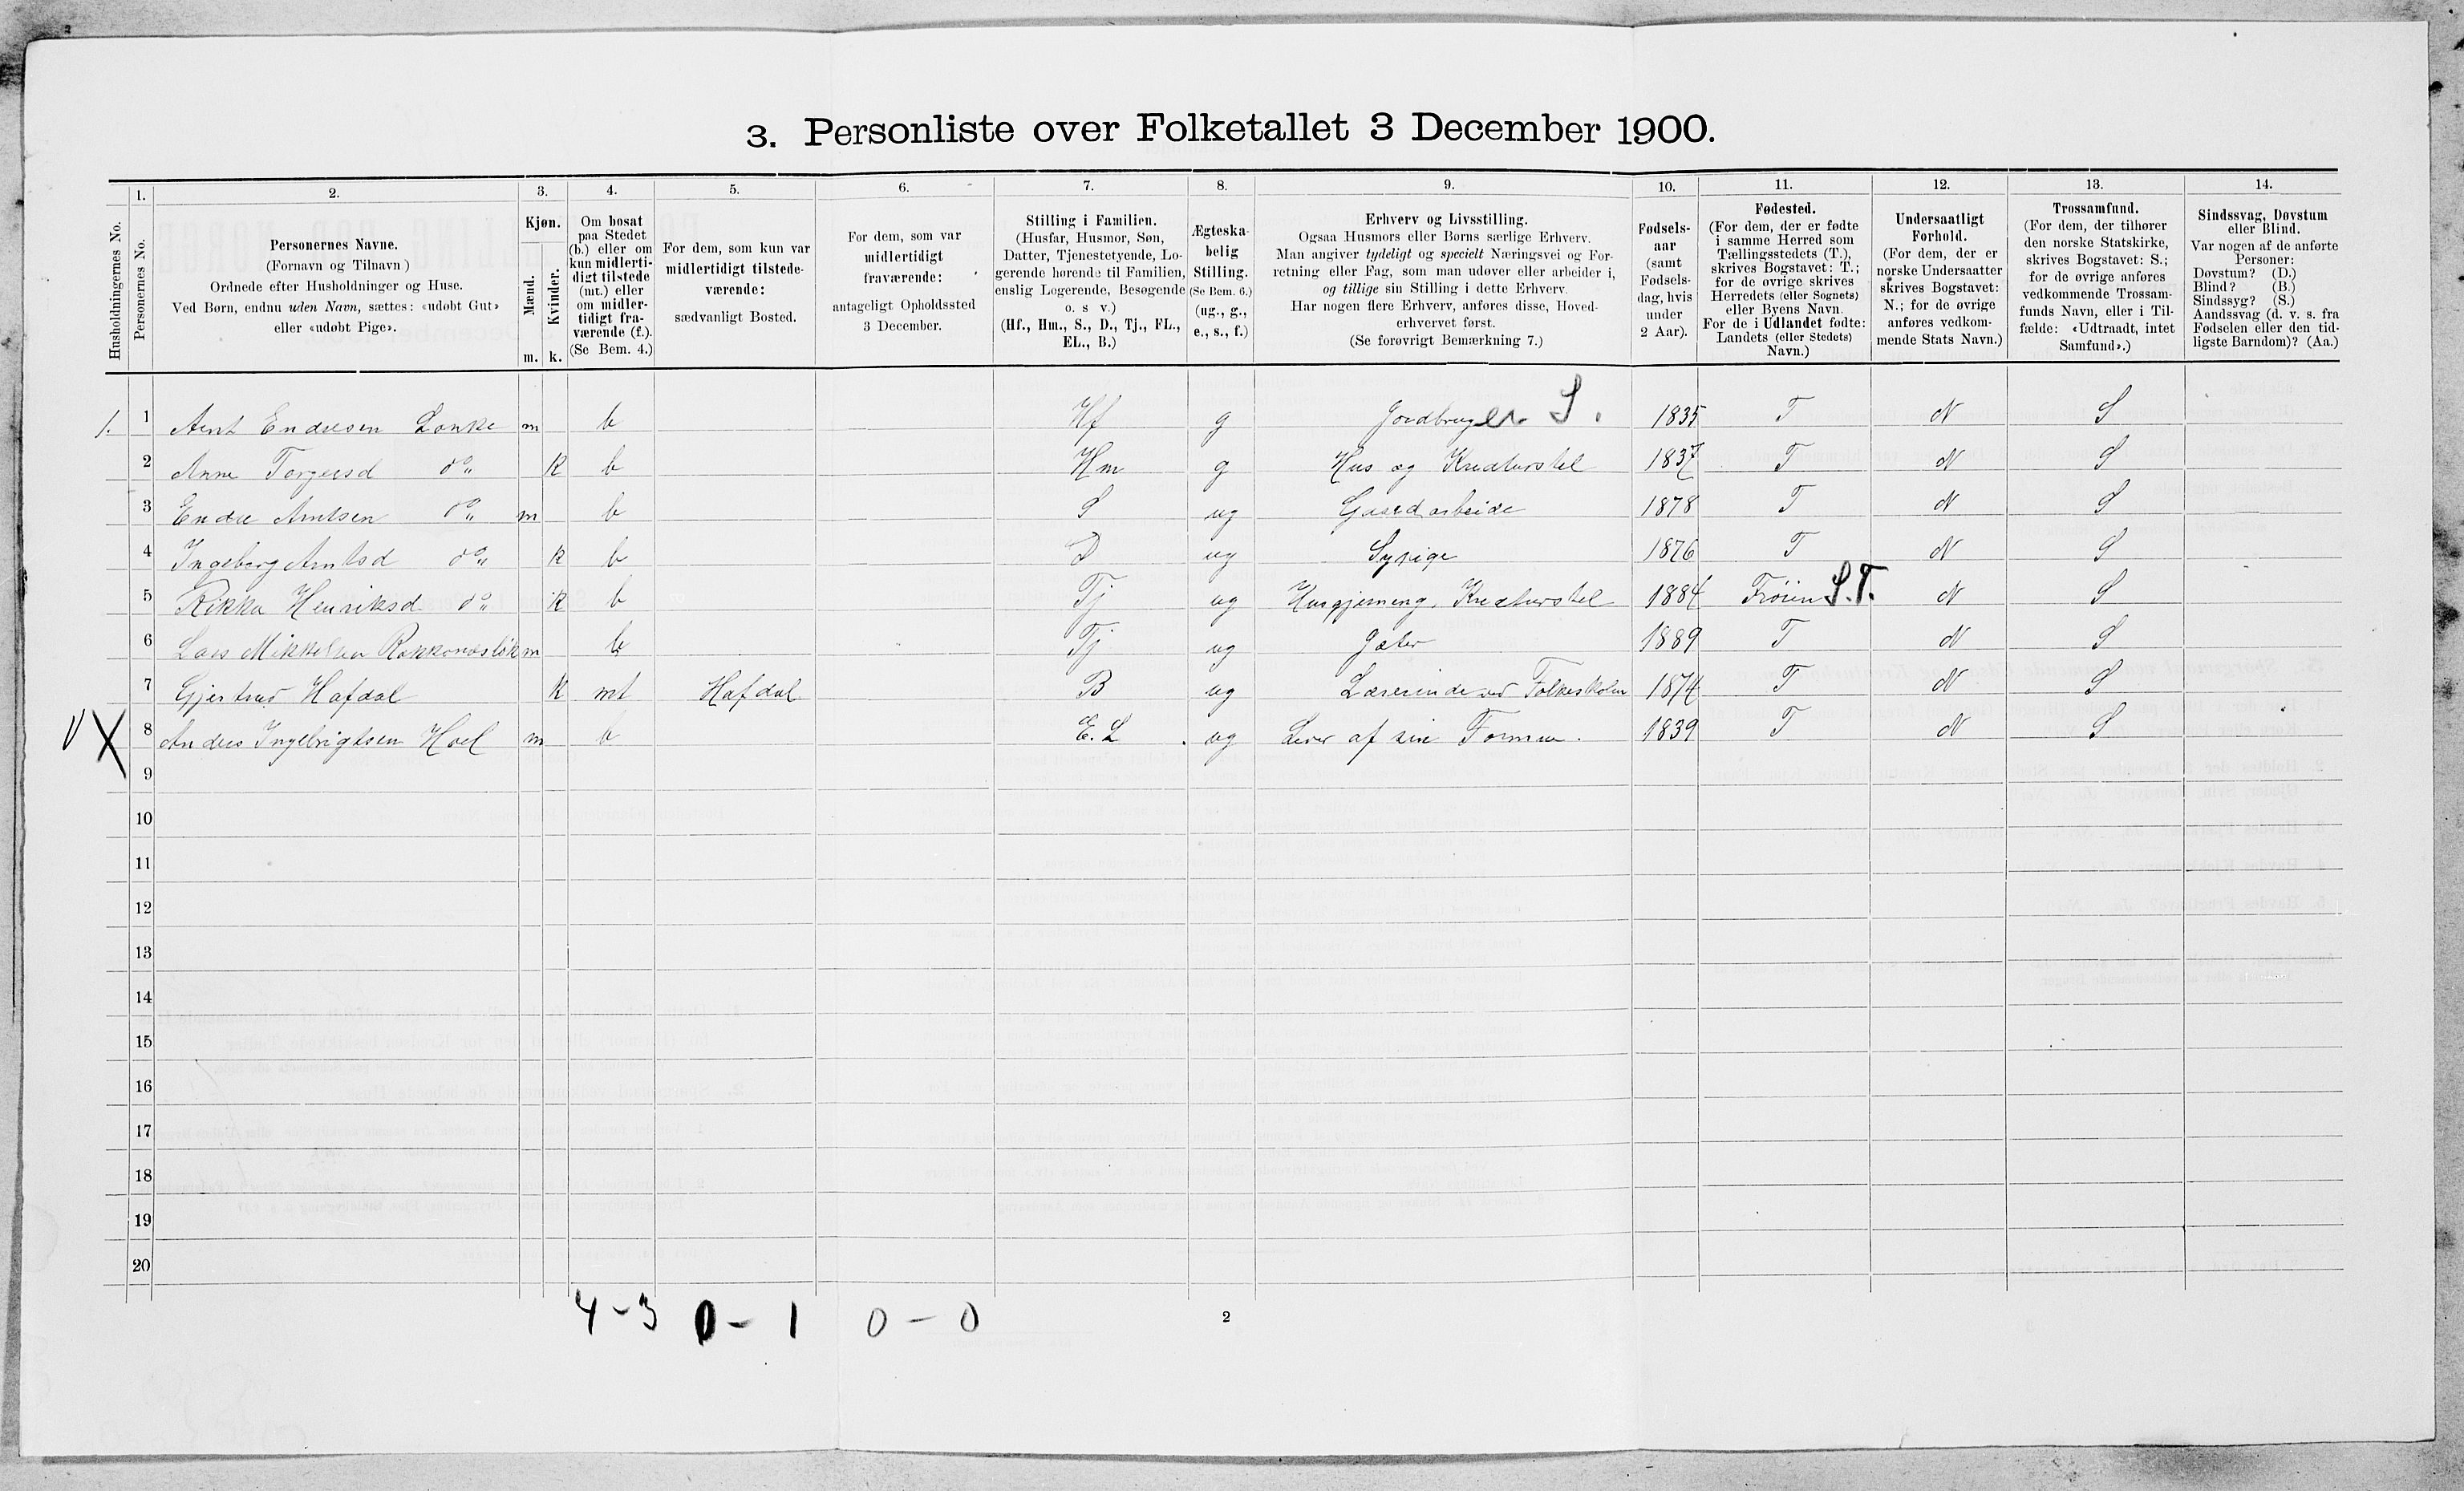 3. Personliste over Folketallet 3 December 1900.
Husholdningernes No.
1. Personernes No.
2. Personernes Navne.
(Fornavn og Tilnavn)
Ordnede efter Husholdninger og Huse.
Ved Børn, endnu uden Navn, sættes: «udøbt Gut»
eller «udøbt Pige».
3. Kjøn.
Mænd. m.
Kvinder. k.
4. Om bosat
paa Stedet
(b.) eller om
kun midlerti-
digt tilstede
(mt.) eller
om midler-
tidigt fra-
værende (f.).
(Se Bem. 4.)
5. For dem, som kun var
midlertidigt tilstede-
værende:
sædvanligt Bosted.
6. For dem, som var
midlertidigt
fraværende:
antageligt Opholdssted
3 December.
7. Stilling i Familien.
(Husfar, Husmor, Søn,
Datter, Tjenestetyende, Lo-
gerende hørende til Familien,
enslig Logerende, Besøgende
o. s v.)
(Hf., Hm., S., D., Tj., FL.,
EL., B.)
8. Ægteska-
belig
Stilling.
(Se Bem. 6.)
(ug., g.,
e., s., f.)
9. Erhverv og Livsstilling.
Ogsaa Husmors eller Børns særlige Erhverv.
Man angiver tydeligt og specielt Næringsvei og For-
retning eller Fag, som man udøver eller arbeider i,
og tillige sin Stilling i dette Erhverv.
Har nogen flere Erhverv, anføres disse, Hoved-
erhvervet først.
(Se forøvrigt Bemærkning 7.)
10. Fødsels-
aar
(samt
Fødsels-
dag, hvis
under
2 Aar).
11. Fødested.
(For dem, der er fødte
i samme Herred som
Tællingsstedets (T.),
skrives Bogstavet: T.;
for de øvrige skrives
Herredets (eller Sognets)
eller Byens Navn.
For de i Udlandet fødte:
Landets (eller Stedets)
Navn.)
12. Undersaatligt
Forhold.
(For dem, der er
norske Undersaatter
skrives Bogstavet:
N.; for de øvrige
anføres vedkom-
mende Stats Navn.)
13. Trossamfund.
(For dem, der tilhører
den norske Statskirke,
skrives Bogstavet: S.;
for de øvrige anføres
vedkommende Trossam-
funds Navn, eller i Til-
fælde: «Udtraadt, intet
Samfund».)
14. Sindssvag, Døvstum
eller Blind.
Var nogen af de anførte
Personer:
Døvstum? (D.)
Blind? (B.)
Sindssyg? (S.)
Aandssvag (d. v. s. fra
Fødselen eller den tid-
ligste Barndom)? (Aa.)
1. 1 Arnt Endresen Lonke m b Hf g Jordbruger S. 1835 T N S
2 Anne Torgersd do k b Hm g Hus og Kreaturstel 1837 T N S
3 Endre Arntsen do m b S ug Gaardarbeide 1878 T N S
4 Ingeborg Arntsd do k b D ug Sypige 1876 T N S
5 Rikka Henriksd do k b Tj ug Husgjerning, Kreaturstel 1884 Frøien S.T. N S
6 Lars Mikkelsen m b Tj ug Gjæter 1889 T N S
7 Gjertrud Hafdal k mt Hafdal B ug Lærerinde ved Folkeskolen 1874 T N S
V X 8 Anders Ingebrigtsen Hoel m b E. L. ug Lever af sin Formue. 1839 T N S
9
10
11
12
13
14
15
16
17
18
19
20
4-3 0-1 0-0
2